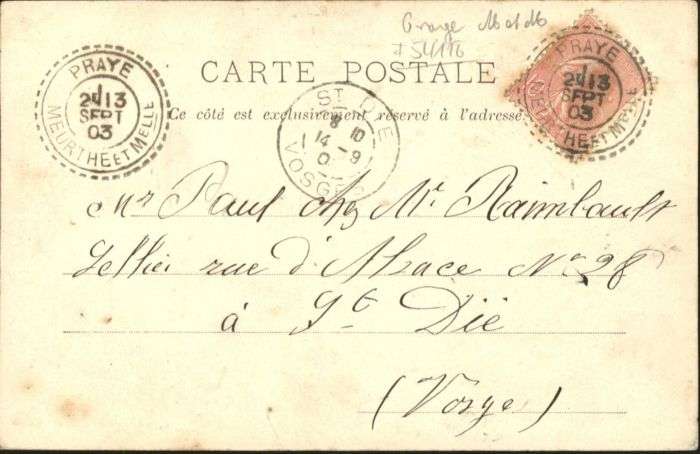 PRAYE
2E 13
SEPT
03
MEURTHE ET MELLE
CARTE POSTALE
Ce côté est exclusivement réservé à l'adresse.
ST DIE
8 10
14 - 9
VOSGES
PRAYE
2E 13
SEPT
03
MEURTHE ET MELLE
Mr Paul chez Mr. Raimbault
Sellier rue d'Alsace No 28
à St Dié
(Vosge)